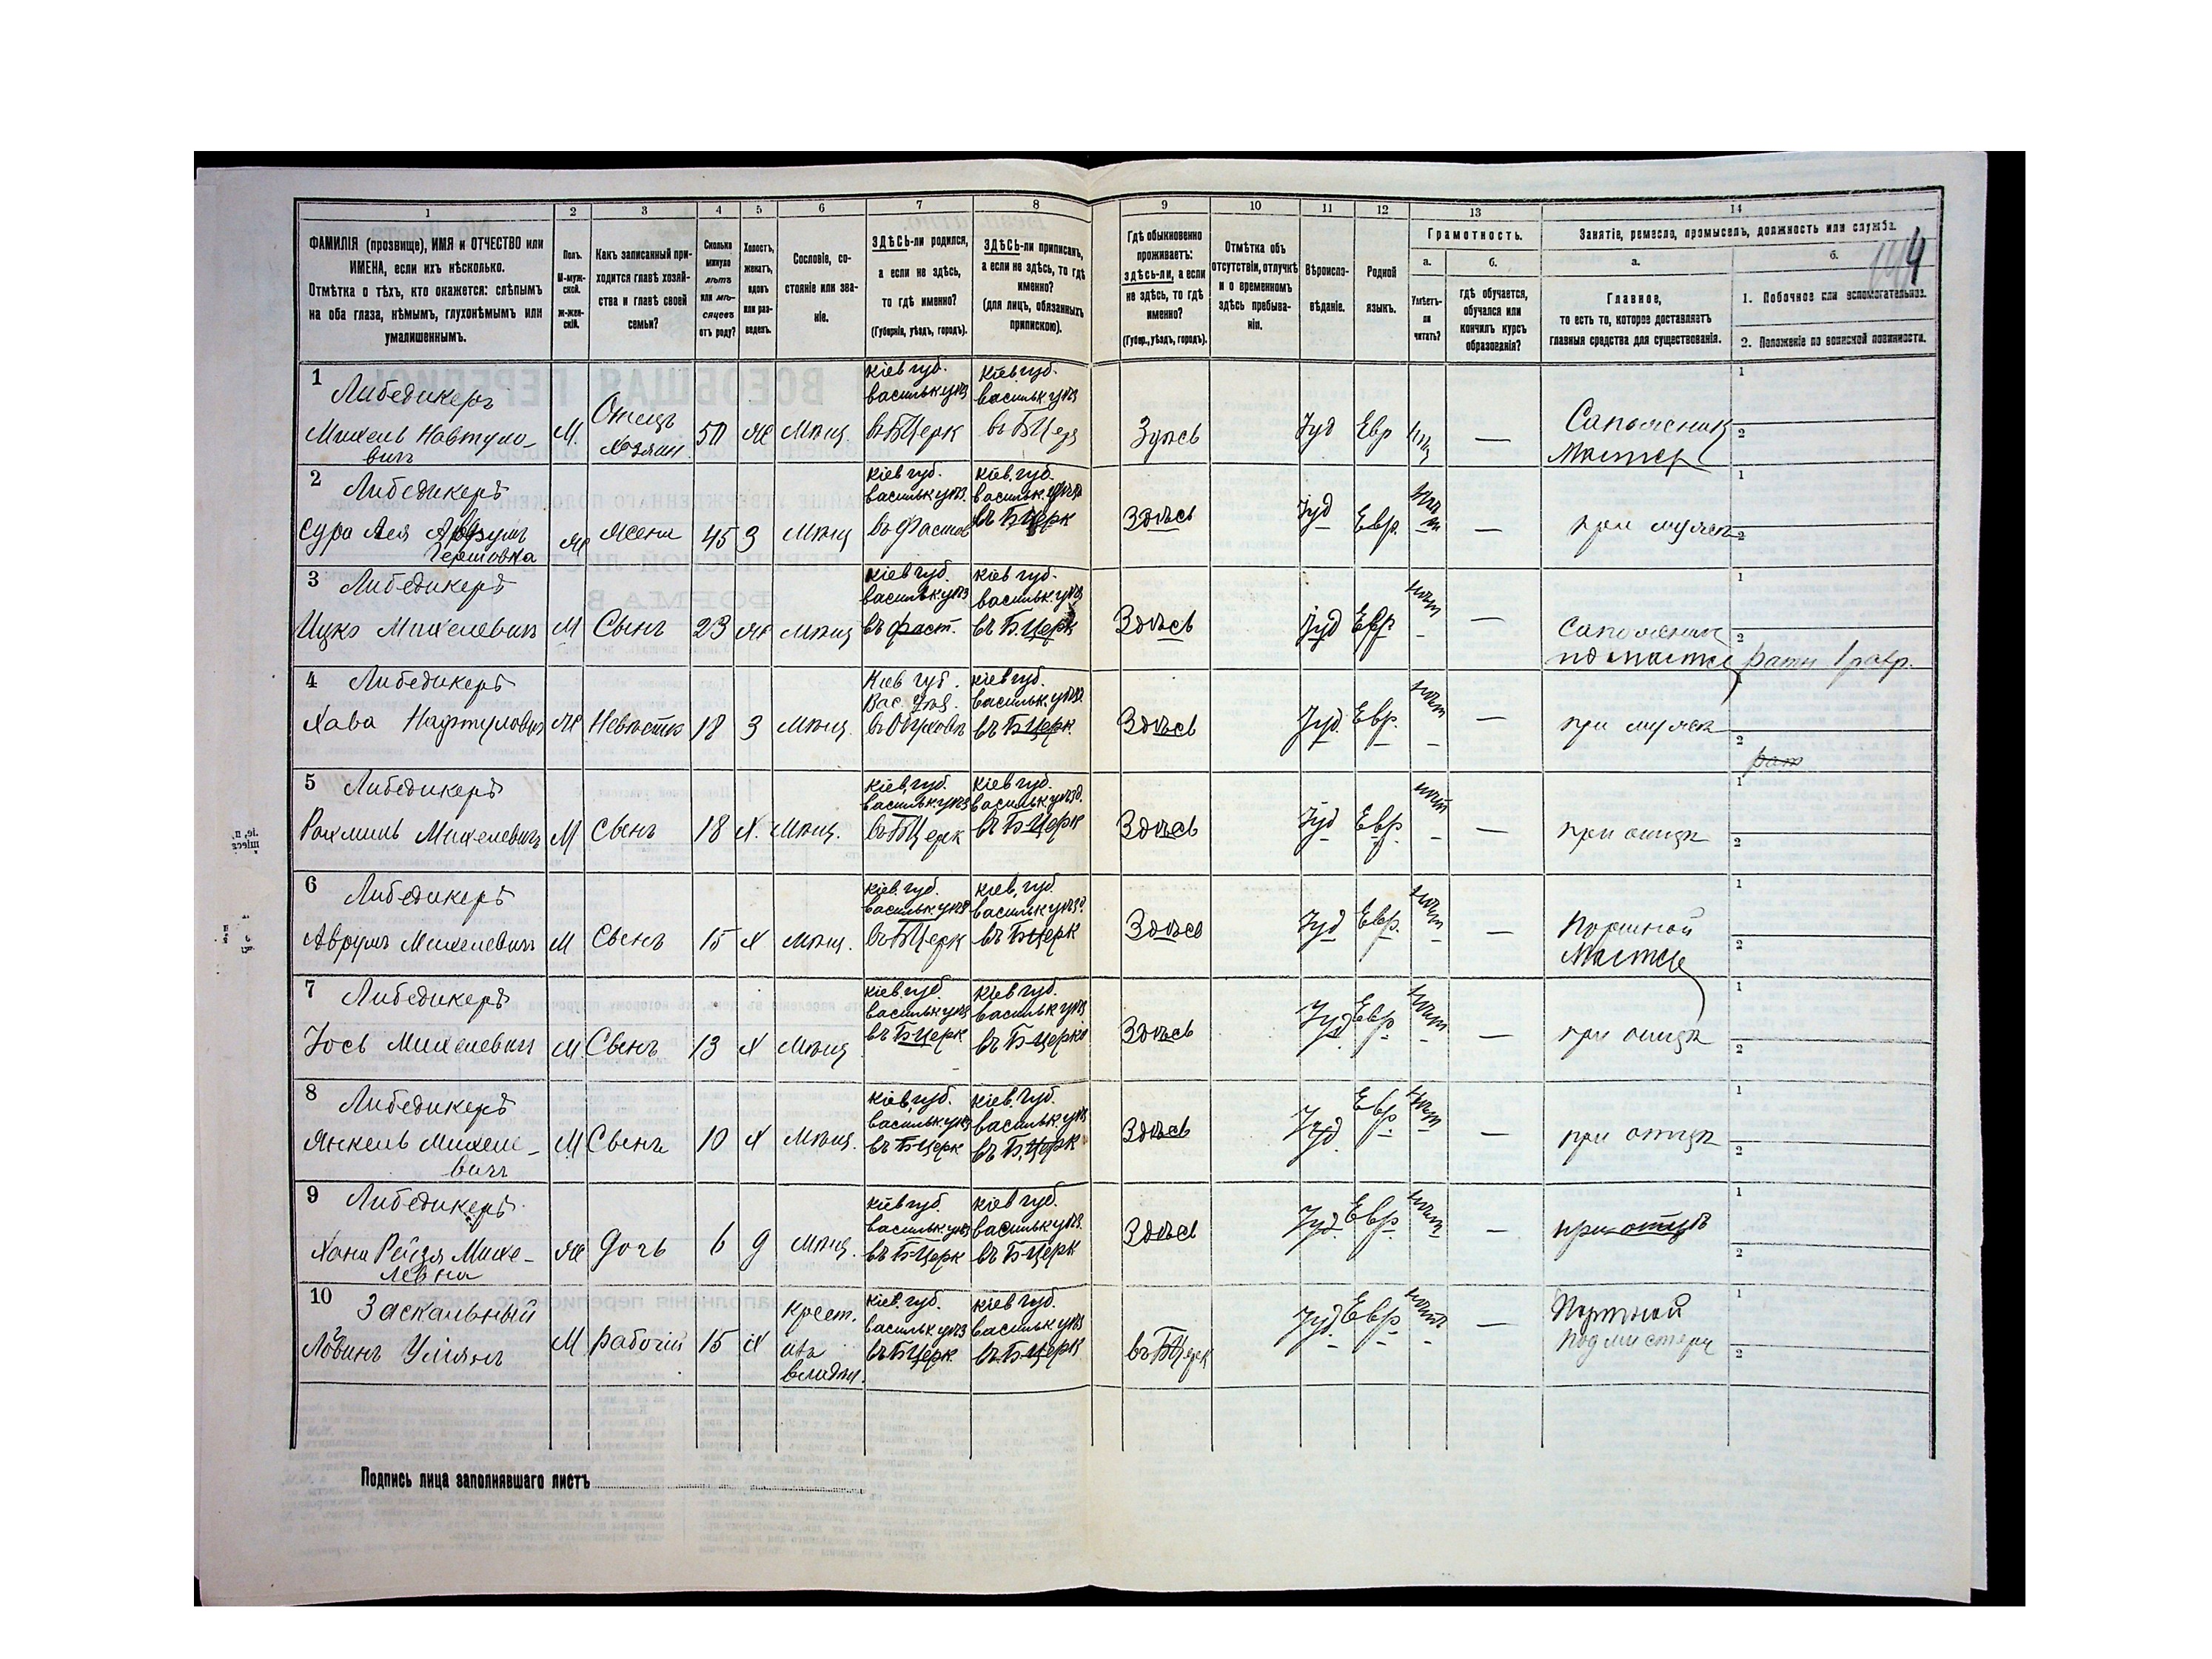 1 2 3 4 5 6 7 8 9 10 11 12 13 14
ФАМИЛІЯ (прозвище), ИМЯ и ОТЧЕСТВО или
ИМЕНА, если ихъ нѣсколько.
Отмѣтка о тѣхъ, кто окажется: слѣпымъ
на оба глаза, нѣмымъ, глухонѣмымъ или
умалишеннымъ.
Полъ.
М-муж-
ской.
ж-жен-
скій.
Какъ записанный при-
ходится главѣ хозяй-
ства и главѣ своей
семьи?
Сколько
минуло
лѣтъ
или мѣ-
сяцевъ
отъ роду?
Холостъ,
женатъ,
вдовъ
или раз-
веденъ.
Сословіе, со-
стояніе или зва-
ніе.
ЗДѢСЬ-ли родился,
а если не здѣсь,
то гдѣ именно?
(Губернія, уѣздъ, городъ).
ЗДѢСЬ-ли приписанъ,
а если не здѣсь, то гдѣ
именно?
(для лицъ, обязанныхъ
припискою).
Гдѣ обыкновенно
проживаетъ:
здѣсь-ли, а если
не здѣсь, то гдѣ
именно?
(Губер., уѣздъ, городъ).
Отмѣтка объ
отсутствіи, отлучкѣ
и о временномъ
здѣсь пребыва-
ніи.
Вѣроиспо-
вѣданіе.
Родной
языкъ.
Грамотность.
а.
Умѣетъ-
ли
читать?
б.
гдѣ обучается,
обучался или
кончилъ курсъ
образованія?
Занятіе, ремесло, промыселъ, должность или служба.
а.
Главное,
то есть то, которое доставляетъ
главныя средства для существованія.
б.
1. Побочное или вспомогательное.
2. Положеніе по воинской повинности.
1 Либедикеръ
Михель Навтуло-
вичъ
М. Отецъ
Хозяин 50 Ж Мѣщ.
Кіев губ.
Васильк уѣз
въ БЦерк
Кіев. губ.
Васильк уѣз
въ БЦер
Іуд Евр —
Сапожник
Мастер
1
2
2 Либедикеръ
Сура Лея
Гершовна
Ж Жена 45 З Мѣщ
Кіев губ.
Васильк уѣз.
въ Фастов
Кіев. губ.
Васильк. уѣзд
въ БЦерк
Здѣсь Іуд Евр. нѣт — при мужѣ
1
2
3 Либедикеръ
Ицко Михелевичъ М Сынъ 23 Ж Мѣщ
Кіев губ.
Васильк уѣз
въ Фаст.
Кіев губ.
Васильк. уѣз
въ Б.Церк
Здѣсь Іуд Евр нѣт —
Сапожник
подмастер
1
2
ратн 1 разр.
4 Либедикеръ
Хава Ж Невѣстка 18 З Мѣщ.
Кіев губ.
Вас. уѣз.
въ Обуховѣ
Кіев губ.
Васильк. уѣзд
въ БЦерк.
Здѣсь Іуд. Евр. нѣт — при мужѣ
1
2
рат
5 Либедикеръ
Рахмиль Михелевичъ М Сынъ 18 Х. Мѣщ.
Кіев. губ.
Васильк уѣз
въ БЦерк
Кіев губ.
Васильк уѣзд.
въ Б-Церк
Здѣсь Іуд Евр. нѣт — при отцѣ
1
2
6 Либедикеръ
Аврумъ Михелевичъ М Сынъ 15 Х Мѣщ.
Кіев. губ.
Васильк. уѣзд
въ БЦерк
Кіев. губ.
Васильк уѣзд.
въ БЦерк
Здѣсь Іуд Евр. нѣт —
Портной
Мастер
1
2
7 Либедикеръ
Іось Михелевичъ М Сынъ 13 Х Мѣщ
Кіев. губ.
Васильк уѣз
въ БЦерк
Кіев губ.
Васильк уѣз
въ Б-Церк
Здѣсь Іуд Евр. нѣт — при отцѣ
1
2
8 Либедикеръ
Янкель Михеле-
вичъ
М Сынъ 10 Х Мѣщ.
Кіев. губ.
Васильк. уѣз
въ Б-Церк
Кіев. губ.
Васильк. уѣз
въ Б.Церк
Здѣсь Іуд. Евр. нѣт — при отцѣ
1
2
9 Либедикеръ
Хана Рейзя Михе-
левна
Ж Дочь 6 Д Мѣщ.
Кіев губ.
Васильк. уѣз
въ Б-Церк
Кіев губ.
Васильк уѣз.
въ Б-Церк
Здѣсь Іуд. Евр. нѣт — при отцѣ
1
2
10 Заскальный
М рабочій 15 Х
Крест.
Кіев. губ.
Васильк уѣз
въ БЦерк.
Кіев губ.
Васильк уѣз
въ Б-Церк
въ БЦерк Іуд. Евр. нѣт —
Портной
Подмастеръ
1
2
Подпись лица заполнявшаго листъ